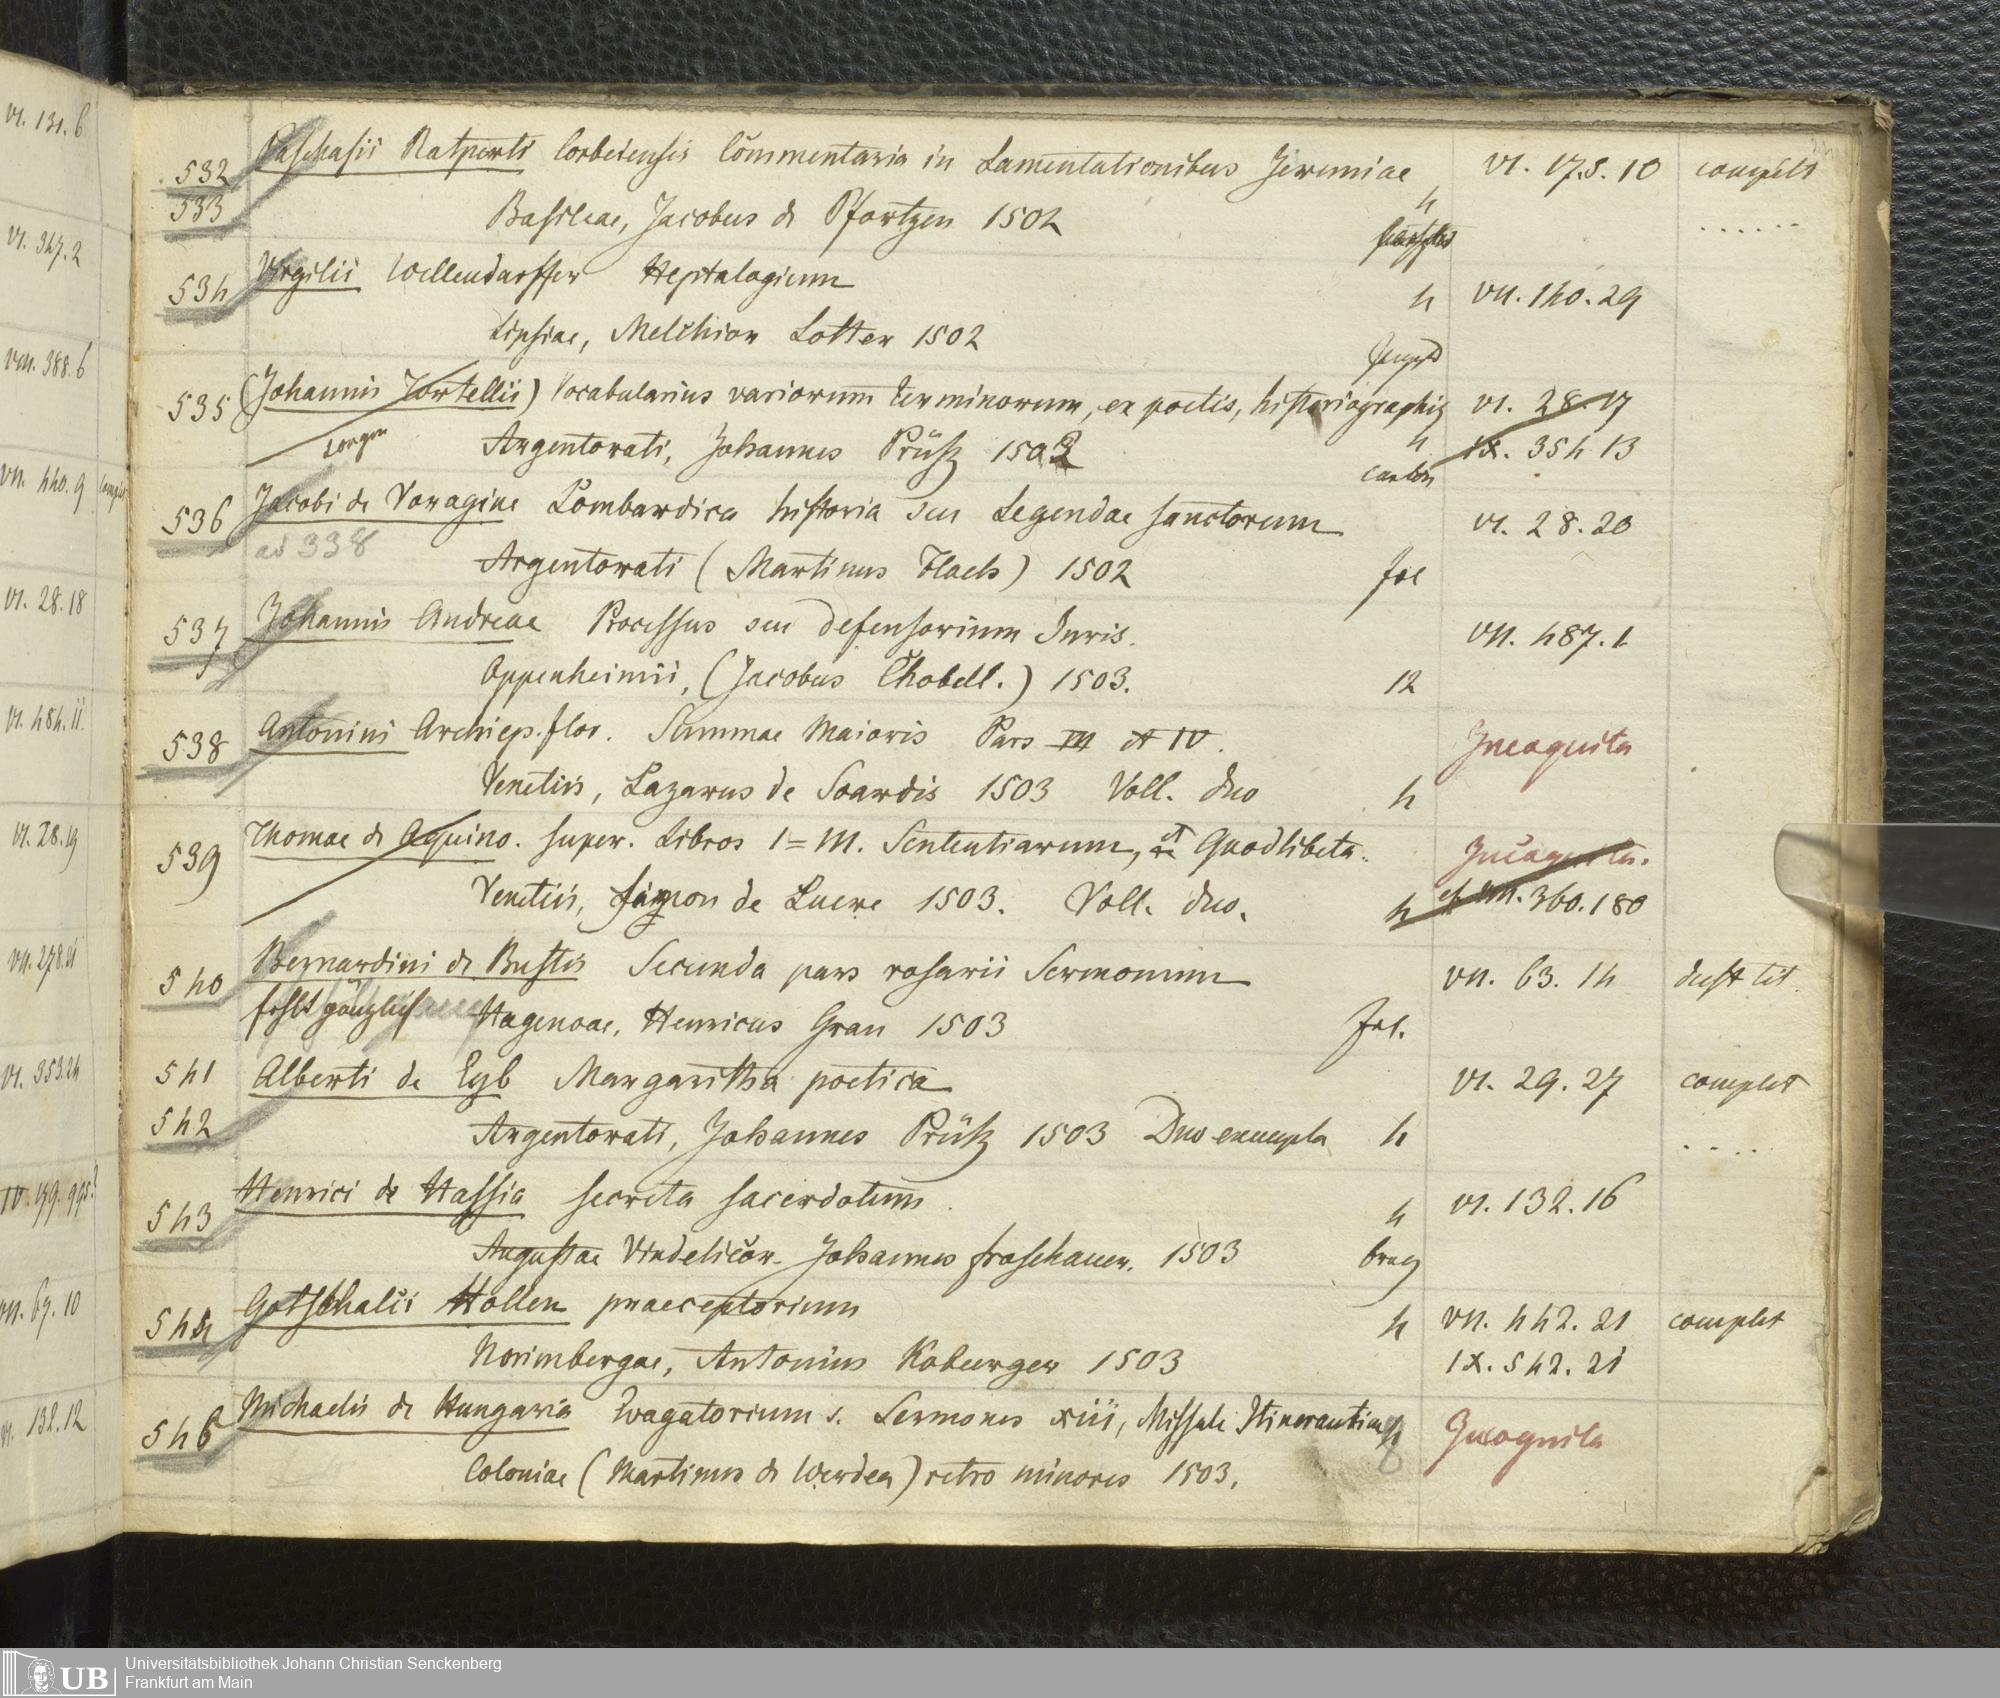 VI. 131. 6
VI. 347. 2
VIII. 388. 6
VII. 440. 9
VI. 28. 18
VI. 484. 11.
VI. 28. 19
VI. 353.24
VII. 69. 10
VI. 132. 12
532 Paschasii Ratperti Corbeiensis Commentaria in Lamentationibus Jeremiae 4 VI. 17.5. 10 complet
533 Basileae, Jacobus de Pfortzen 1502 . . . . . .
534 Virgilii Wellendarffer Heptalogium 4 VII. 140. 29
Lipsiae, Melchior Lotter 1502
535 (Johannis Tortellii) Vocabularius variorum terminorum, ex poetis, historiographis 4 VI. 28. 17
Argentorati, Johannes Prüß 1502 carton IX. 354 13
536 Jacobi de Voragine Lombardica historia seu Legendae sanctorum VI. 28. 20
ad 338 Argentorati (Martinus Flach) 1502 fol
537 Johannis Andreae Processus seu defensorium Juris. VII. 487. 1
Oppenheimii, (Jacobus Chobell.) 1503. 12
538 Antonini Archiep. flor. Summae Maioris Pars III et IV. Incognita
Venetiis, Lazarus de Soardis 1503 Voll. duo 4
539 Thomae de Aquino. super. Libros I = III. Sententiarum, et Quodlibeta. Incognita.
Venetiis, Simon de Luere 1503. Voll. duo. 4 cf. VII. 360. 180
540 Bernardini de Bustis Secunda pars rosarii Sermonum VII. 63. 14 deest tit.
fehlt gänzlich Hagenoae, Henricus Gran 1503 fol.
541 Alberti de Eyb Margaritha poetica VI. 29. 27 complet
542 Argentorati, Johannes Prüß 1503 Duo exempla 4 . . . . .
543 Henrici de Hassia secreta sacerdotum 4 VI. 132. 16
Augustae Vindelicor. Johannes froschauer. 1503 broch
544 Gotschalci Hollen praeceptorium 4 VII. 442. 21 complet
Norimbergae, Antonius Koburger 1503 IX. 542. 21
546 Michaelis de Hungaria Evagatorium s. Sermones xiii, Missale Itinerantium Incognita
Coloniae (Martinus de Werdea) retro minores 1503.
UB
Universitätsbibliothek Johann Christian Senckenberg
Frankfurt am Main